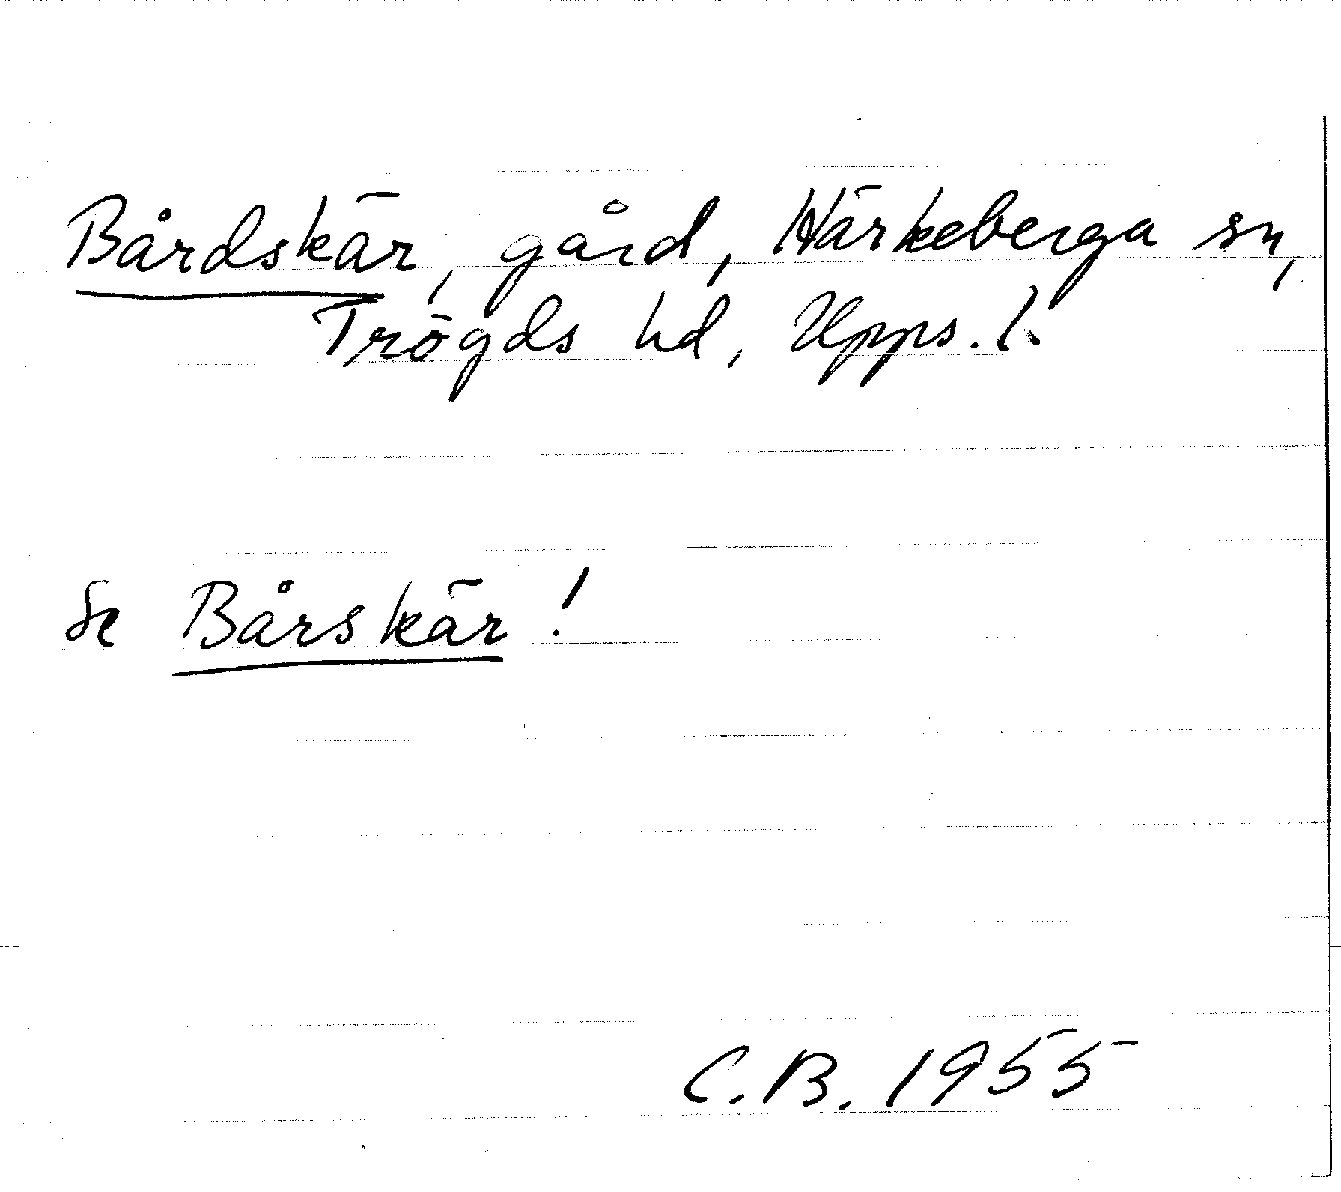 Bårdskär, gård, Härkeberga sn,
Trögds hd, Upps. l.
Se Bårskär!
C.B. 1955